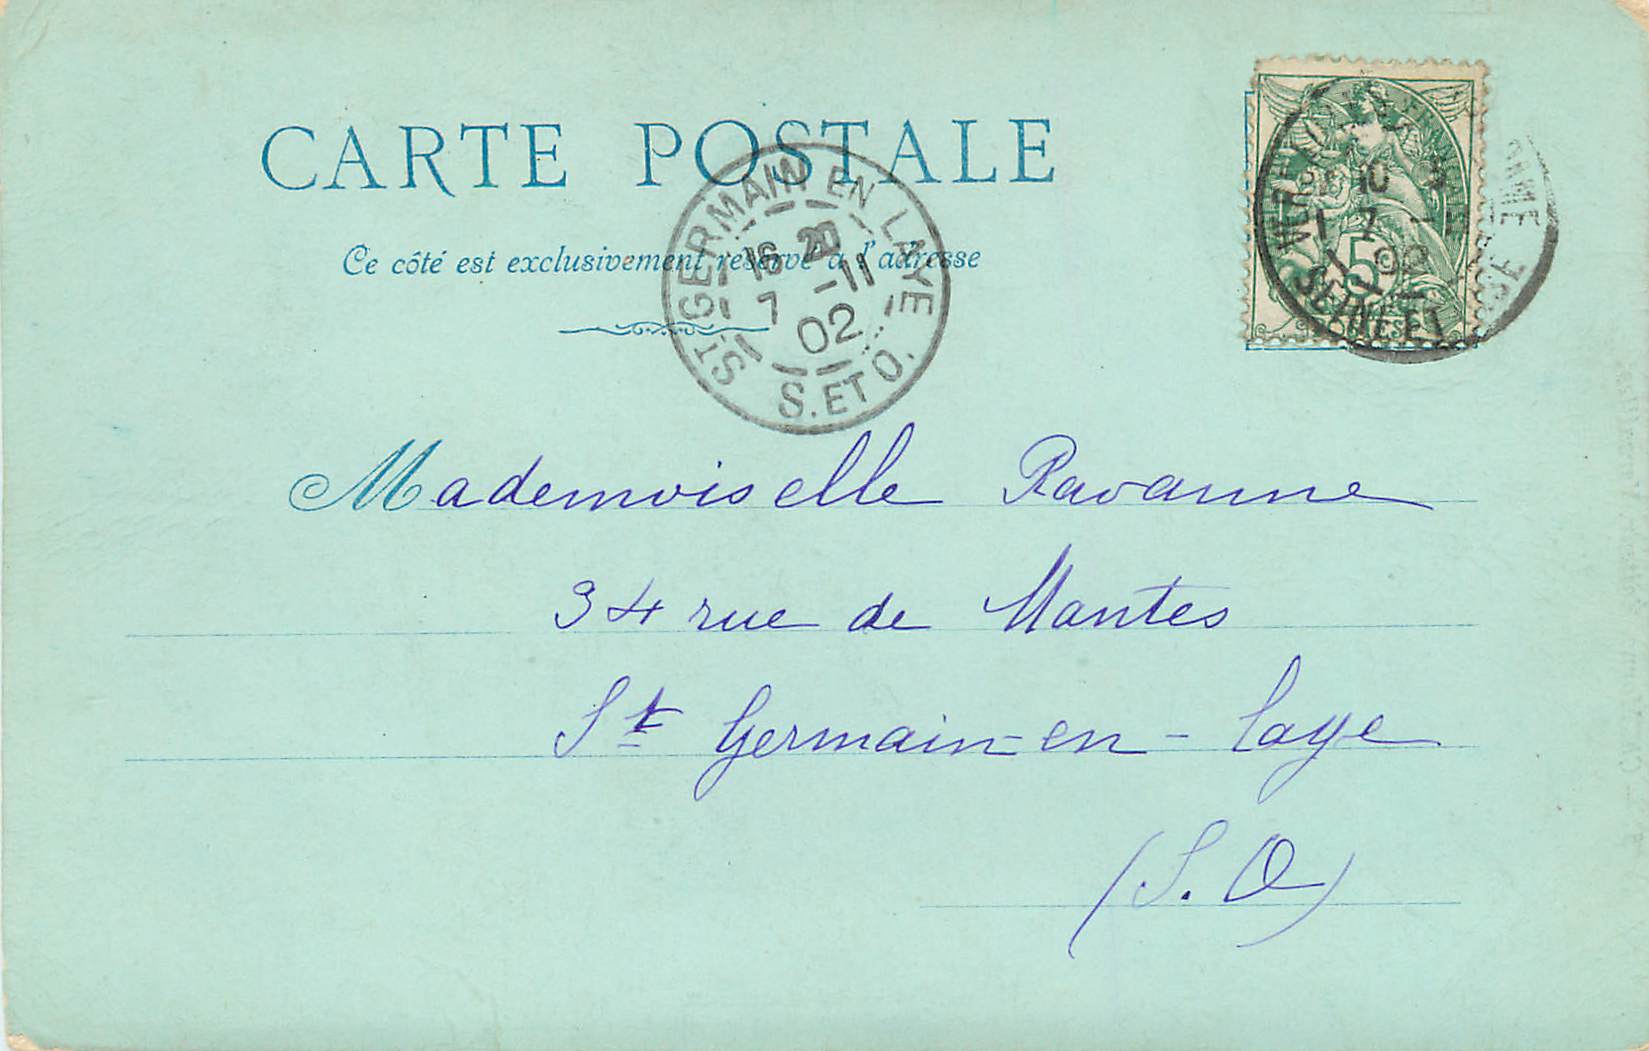 CARTE POSTALE
Ce côté est exclusivement réservé à l'adresse
ST GERMAIN EN LAYE
16 20
7 -11
02
S. ET O.
10
7
5
SEINE ET
Mademoiselle Ravanne
34 rue de Mantes
St Germain-en-Laye
(S. O)